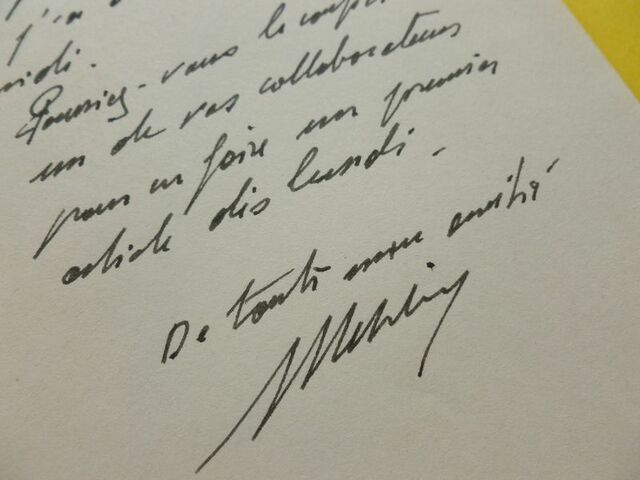 j'ai
Pourriez-vous le
un de vos collaborateurs
pour en faire un premier
article dès lundi.
De toute mon amitié